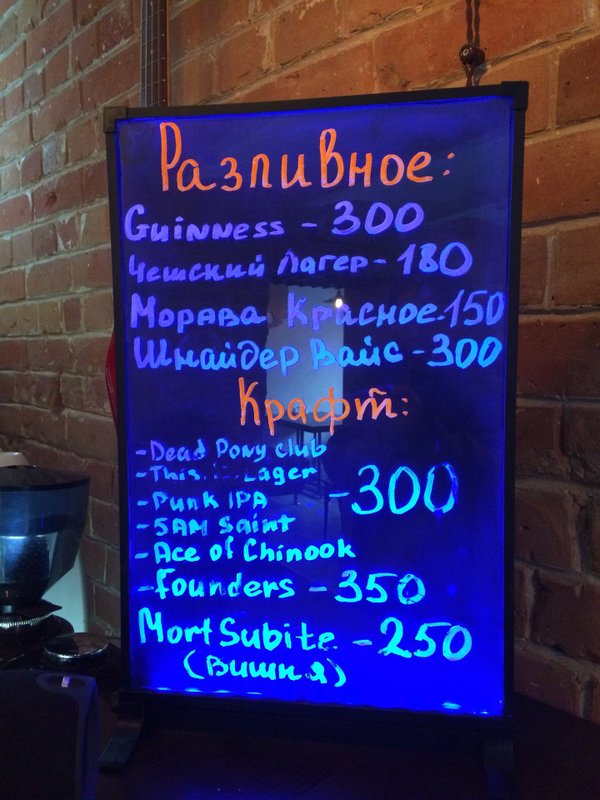 Разливное:
Guinness - 300
Чешский Лагер - 180
Морава Красное - 150
Шнайдер Вайс - 300
Крафт:
- Dead Pony club
- This. Lager
- Punk IPA
- 300
- 5AM Saint
- Ace of Chinook
- Founders - 350
Mort Subite - 250
(Вишня)